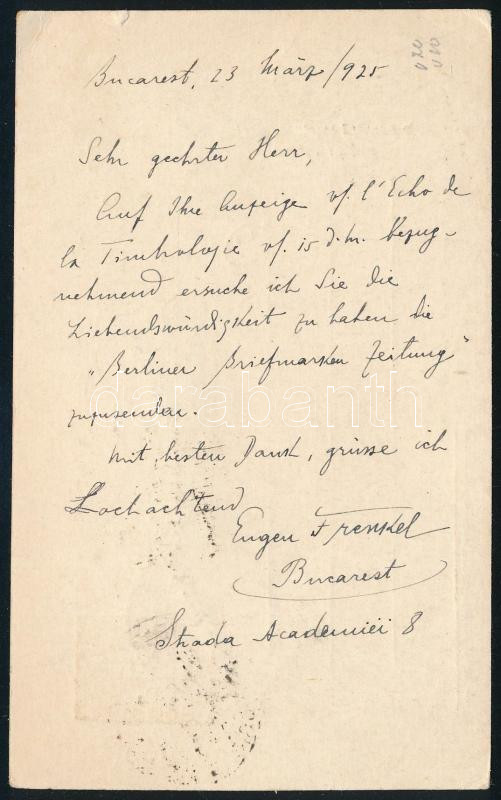 Bucarest, 23 März/925
Sehr geehrter Herr,
Auf Ihre Anzeige v/. l'Echo de
la Timbrologie v/. 15 d.M. bezug-
nehmend ersuche ich Sie die
Liebenswürdigkeit zu haben die
"Berliner Briefmarken Zeitung"
zuzusenden.
Mit besten Dank, grüsse ich
Hochachtend
Eugen Frenkel
Bucarest
Strada Academiei 8
darabanth